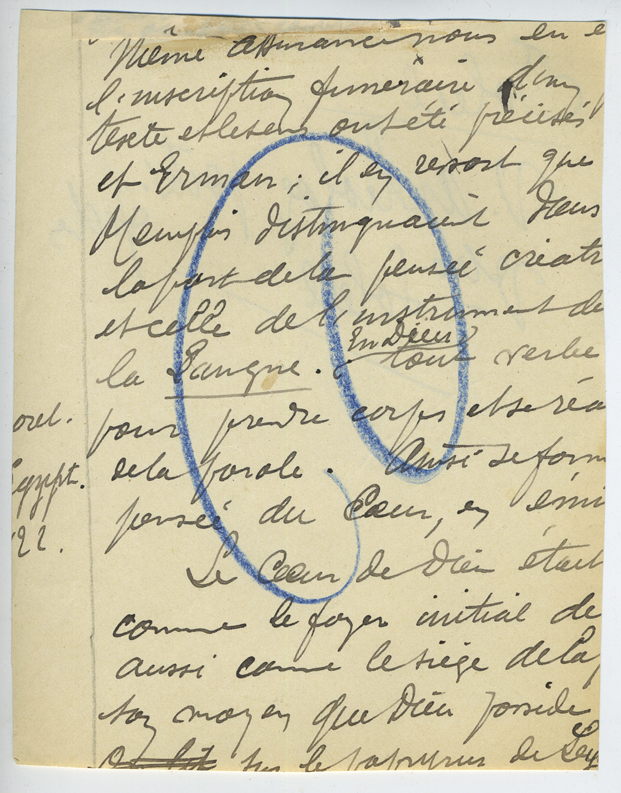 Même assurance nous en e
l'inscription funéraire dont
texte et le sens ont été précisés
et Erman ; il en ressort que
Memphis distinguaient dans
la part de la pensée créatr
et celle de l'instrument de
la Langue. En Dieu tout verbe
orel. pour prendre corps et se réa
de la parole. Ainsi se form
Egypt. pensée du Cœur, en émi
22.
Le Cœur de Dieu était
comme le foyer initial de
aussi comme le siège de la
moyen que Dieu possède
sur le papyrus de Ley